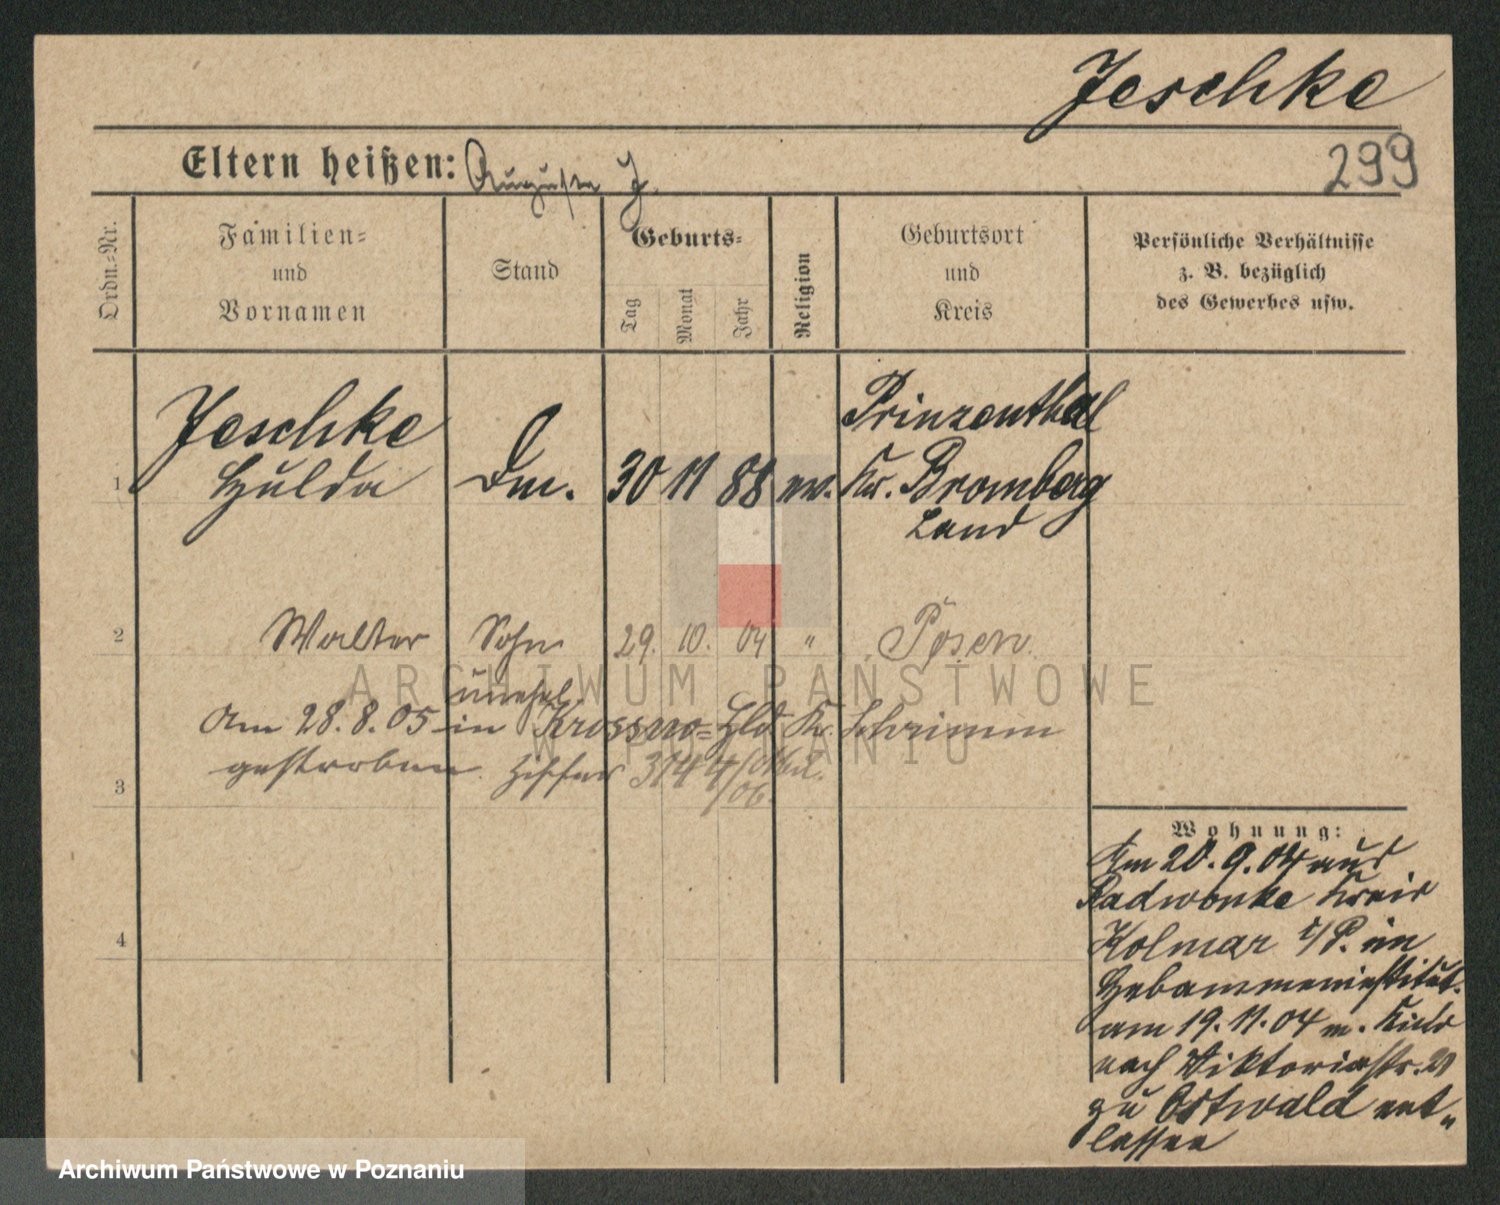 Jeschke
Eltern heißen: Auguste J.
299
Ordn.-Nr.
Familien- und Vornamen
Stand
Geburts-
Tag
Monat
Jahr
Religion
Geburtsort und Kreis
Persönliche Verhältnisse
z. B. bezüglich
des Gewerbes usw.
Jeschke
Prinzenthal
1 Hulda 30 11 88 ev. Kr. Bromberg
Land
2 Walter Sohn 29. 10. 04 " Posen.
unehel.
Am 28. 8. 05 in Krossno-Hld. Kr. Schrimm
gestorben.
3
4
Wohnung:
Am 20. 9. 04 aus
Radwonke Kreis
Kolmar i/P. im
Hebammeninstitut.
am 19. 11. 04 m. Kinde
nach Viktoriastr. 21
zu Ostwald ent„
lassen
ARCHIWUM PAŃSTWOWE
W POZNANIU
Archiwum Państwowe w Poznaniu